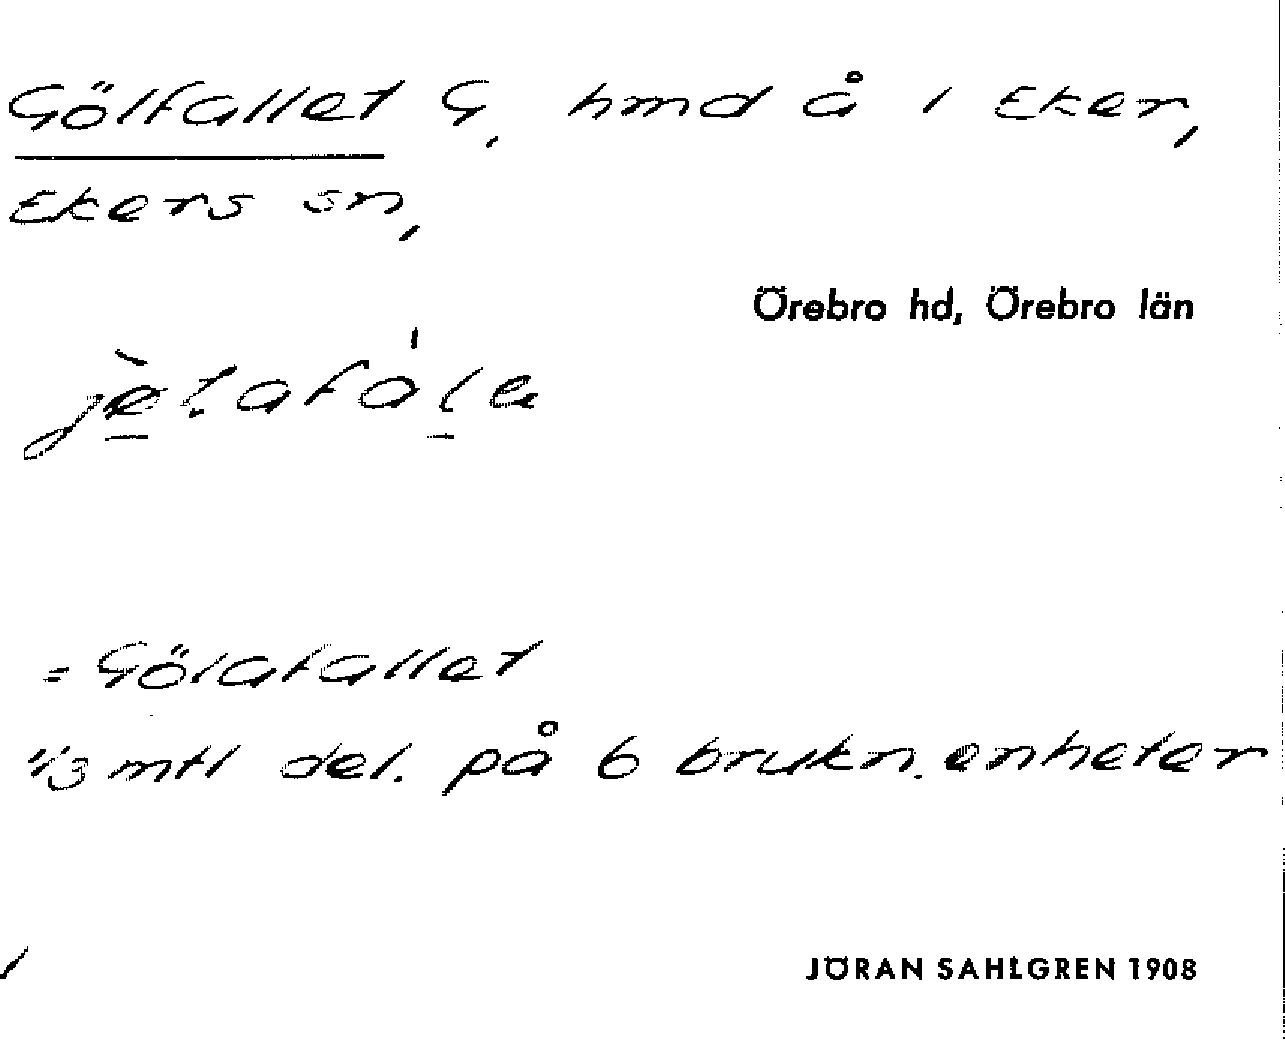 Gölfallet G, hmd å 1 Eker,
Ekers sn,
Örebro hd, Örebro län
= Gölafallet
1/3 mtl del. på 6 brukn. enheter
JÖRAN SAHLGREN 1908